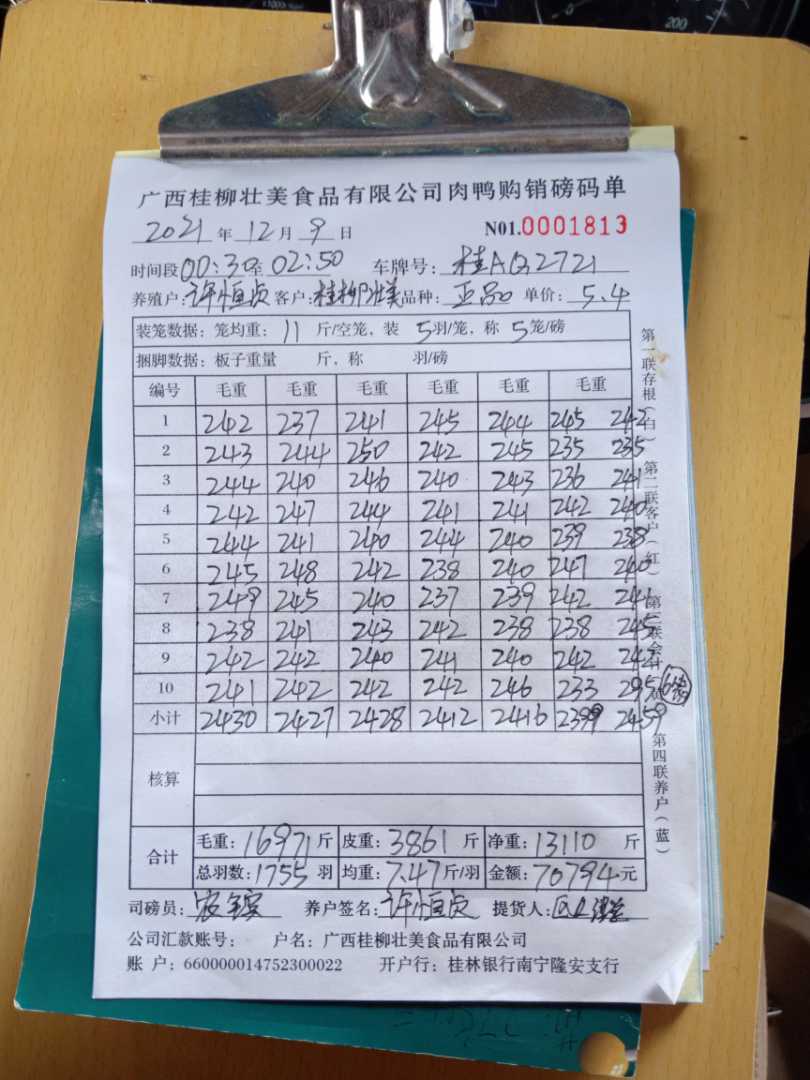 广西桂柳壮美食品有限公司肉鸭购销磅码单
2021 年 12 月 9 日 N01.0001813
时间段 00:30 至 02:50 车牌号: 桂AQ2721
养殖户: 许恒贞 客户: 桂柳壮美 品种: 正品 单价: 5.4
装笼数据: 笼均重: 11 斤/空笼, 装 5羽/笼, 称 5笼/磅
捆脚数据: 板子重量 斤, 称 羽/磅
编号 毛重 毛重 毛重 毛重 毛重 毛重
1 242 237 241 245 244 245 242
2 243 244 250 242 245 235 235
3 244 240 246 240 243 236 241
4 242 247 244 241 241 242 240
5 244 241 240 244 240 239 238
6 245 248 242 238 240 247 240
7 249 245 240 237 239 242 241
8 238 241 243 242 238 238 245
9 242 242 240 241 240 242 242
10 241 242 242 242 246 233 295
小计 2430 2427 2428 2412 2416 2399 2459
核算
合计 毛重: 16971 斤 皮重: 3861 斤 净重: 13110 斤
总羽数: 1755 羽 均重: 7.47 斤/羽 金额: 70794 元
司磅员: 养户签名: 许恒贞 提货人:
公司汇款账号: 户名: 广西桂柳壮美食品有限公司
账 户: 660000014752300022 开户行: 桂林银行南宁隆安支行
第一联存根(白) 第二联客户(红) 第三联会计 第四联养户(蓝)
200